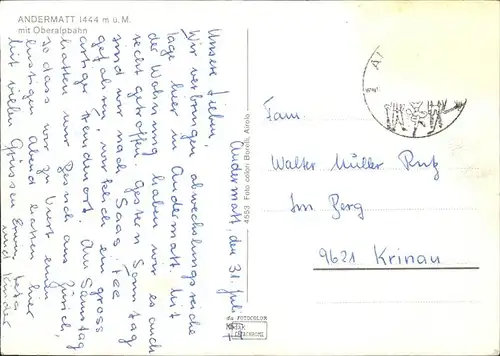 ANDERMATT 1444 m ü. M.
mit Oberalpbahn
Andermatt, den 31. Juli
Unsere Lieben,
Wir verbringen abwechslungsreiche
Tage hier in Andermatt. Mit
der Wohnung haben wir es auch
recht getroffen. Gestern Sonntag
sind wir nach Saas-Fee
gefahren, wirklich ein gross
artiger Fremdenort. Am Samstag
hatten wir Besuch aus Zürich,
so dass wir zu Viert einen
lustigen Abend hatten hier
Mit vielen Grüssen Emmi,
und Kinder
4553 Foto colori Borelli, Airolo
FOTOCOLOR
Fam.
Walter Müller Rutz
Im Berg
9621 Krinau